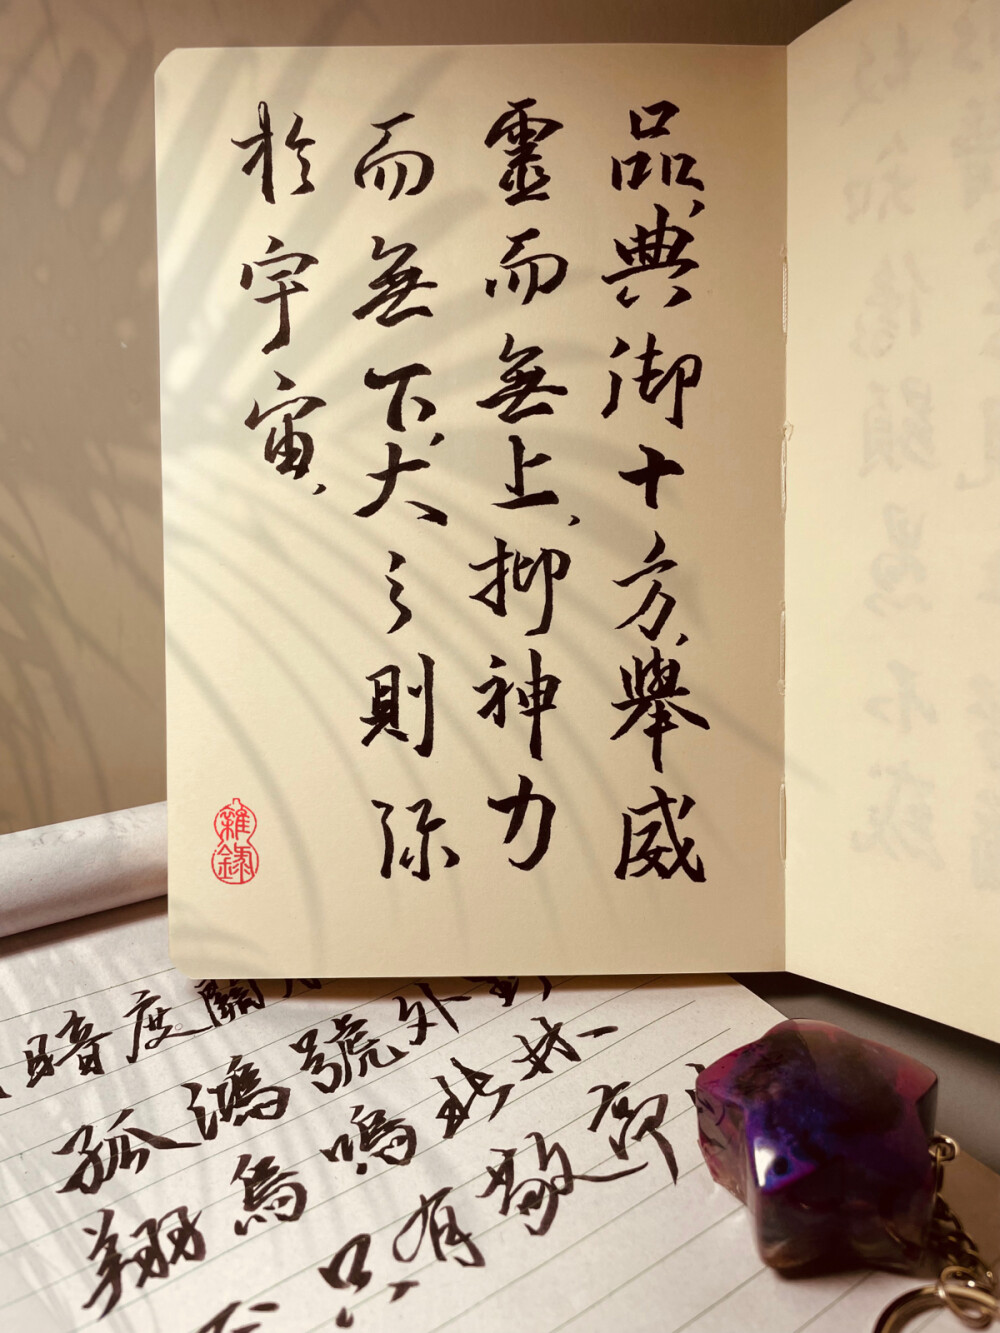 品,典御十方,舉威
靈而無上,抑神力
而無下,大之則弥
於宇宙,
雜錄
暗度關
孤鴻號外野
翔鳥鳴北林
只有敬亭